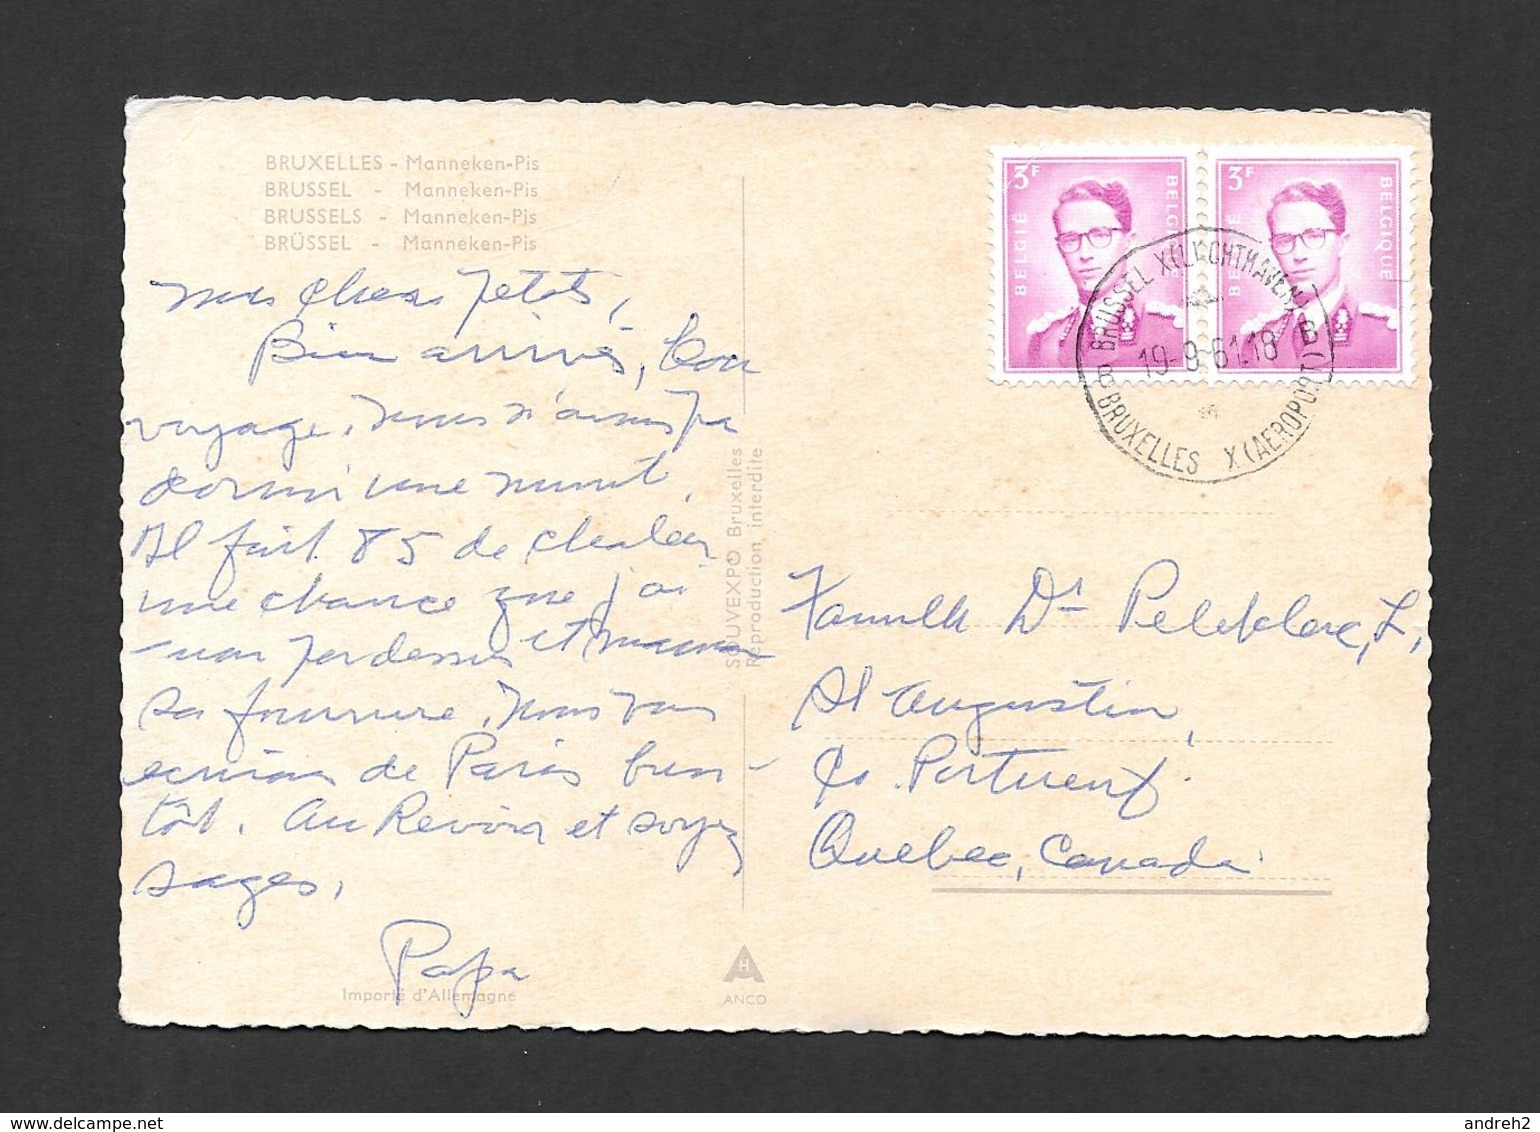 BRUXELLES - Manneken-Pis
BRUSSEL - Manneken-Pis
BRUSSELS - Manneken-Pis
BRÜSSEL - Manneken-Pis
mes chers petits,
Bien arrivés, bon
voyage, nous n'avons pa
dormi une minut.
Il fait 85 de chaleur
une chance que j'ai
mon pardessus et maman
sa fourrure, nous vous
ecrirons de Paris bien-
tôt. Au Revoir et soyez
sages,
Papa
Importé d'Allemagne
SOUVEXPO Bruxelles
Reproduction interdite
H
ANCO
3F
BELGIË
BELGIQUE
3F
BELGIË
BELGIQUE
BRUSSEL X (LUCHTHAVEN)
B
19-9-61.18
B
BRUXELLES X (AEROPORT)
Famille Dr Pelleclerc, L,
St Augustin,
Co. Portneuf.
Quebec, Canada
andreh2
delcampe.net